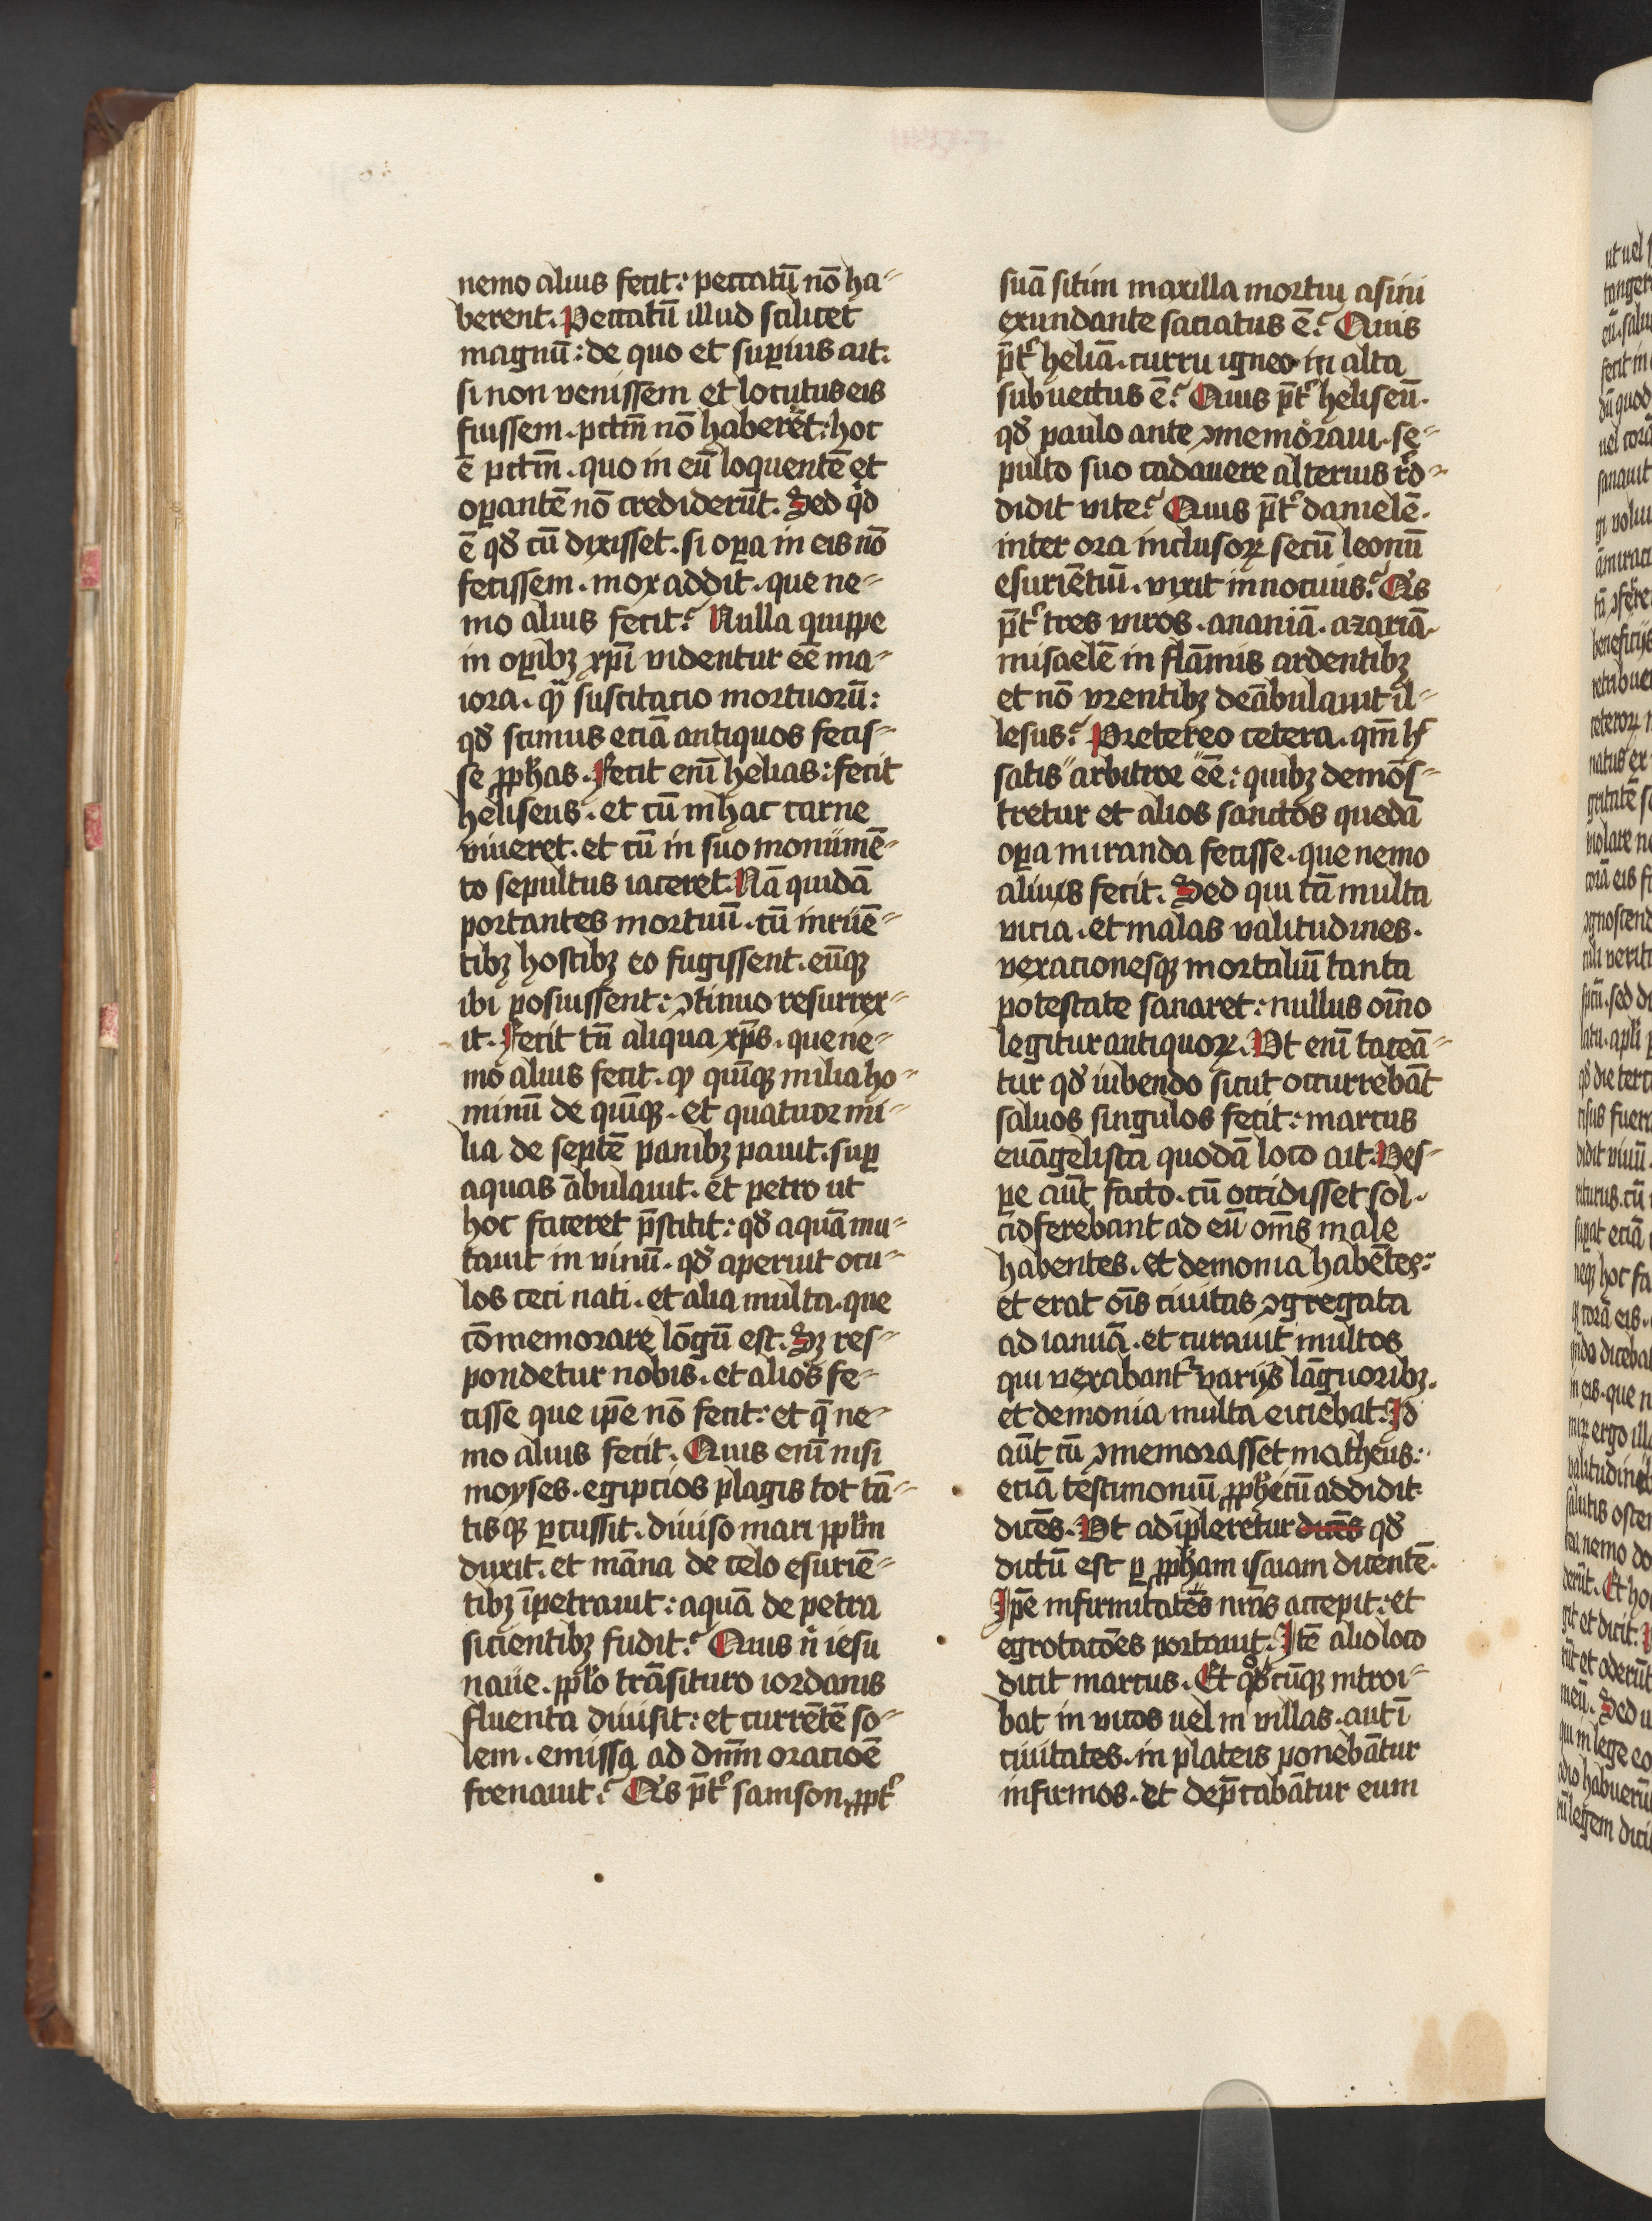 nemo alius fecit: peccatū nō ha-
berent. Peccatū illud scilicet
magnū: de quo et suꝑius ait.
si non venissem et locutus eis
fuissem. pctm̄ nō haberēt: hoc
ē pctm̄. quo in eū loquentē et
oꝑantē nō crediderūt. Sed qͥd
ē qđ cū dixisset. si oꝑa in eis nō
fecissem. mox addit. que ne-
mo alius fecit? Nulla quippe
in oꝑibꝫ xp̄i videntur eē ma-
iora. qͣ suscitatio mortuorū:
qđ scimus eciā antiquos fecis-
se ꝓph̄as. Fecit enī helias: fecit
heliseus. et cū in hac carne
viueret. et cū in suo monumē-
to sepultus iaceret. Nā quidā
portantes mortuū. cū irruē-
tibꝫ hostibꝫ eo fugissent. eūqꝫ
ibi posuissent: ꝯtinuo resurrex-
it. Fecit tn̄ aliqua xp̄s. que ne-
mo alius fecit. ꝙ quīqꝫ milia ho-
minū de quīqꝫ. et quatuor mi-
lia de septē panibꝫ pauit. suꝑ
aquas ābulauit. et petro ut
hoc faceret p̄stitit: qđ aquā mu-
tauit in vinū. qđ aperuit ocu-
los ceci nati. et alia multa. que
cōmemorare lōgū est. Sꝫ res-
pondetur nobis. et alios fe-
cisse que ip̄e nō fecit: et q̄ ne-
mo alius fecit. Quis enī nisi
moyses. egiptios plagis tot tā-
tisqꝫ ꝑcussit. diuiso mari pplm̄
duxit. et māna de celo esuriē-
tibꝫ īpetrauit: aquā de petra
sicientibꝫ fudit? Quis nͥ iesu
naue. pplo trāsituro iordanis
fluenta diuisit: et currētē so-
lem. emissa ad dn̄m oracioē
frenauit? Qͥs p̄tʳ samson. ꝓptʳ
suā sitim maxilla mortui asini
exundante saciatus ē? Quis
p̄tʳ heliā. curru igneo in alta
subuectus ē? Quis p̄tʳ heliseū.
qđ paulo ante ꝯmemoraui. se-
pulto suo cadauere alterius
didit vite? Quis p̄tʳ danielē.
inter ora inclusoꝝ secū leonū
esuriētiū. vixit innocuus? Qͥs
p̄tʳ tres viros. ananiā. azariā.
misaelē in flāmis ardentibꝫ
et nō vrentibꝫ deābulauit il-
lesus? Pretereo cetera. qm̄ h̄
satis arbitror eē: quibꝫ demōs-
tretur et alios sanctos quedā
oꝑa miranda fecisse. que nemo
alius fecit. Sed qui tā multa
vicia. et malas valitudines.
vexacionesqꝫ mortaliū tanta
potestate sanaret: nullus oīno
legitur antiquoꝝ. Ut enī taceā-
tur qđ iubendo sicut occurrebāt
saluos singulos fecit: marcus
euāgelista quodā loco ait. Ves-
ꝑe aūt facto. cū occidisset sol.
afferebant ad eū om̄s male
habentes. et demonia habētes:
et erat oīs ciuitas ꝯgregata
ad ianuā. et curauit multos
qui vexabantʳ varijs lāguoribꝫ.
et demonia multa eiciebat. Id
aūt cū ꝯmemorasset matheus:
eciā testimoniū ꝓph̄eticū addidit
dicēs. Ut adīpleretur dicēs qđ
dictū est ꝑ ꝓph̄am isaiam dicentē.
Ip̄e infirmitates nr̄as accepit: et
egrotacōes portauit. Itē alio loco
dicit marcus. Et qͦcūqꝫ introi-
bat in vicos uel in villas. aut ī
ciuitates. in plateis ponebātur
infirmos. et dep̄cabātur eum